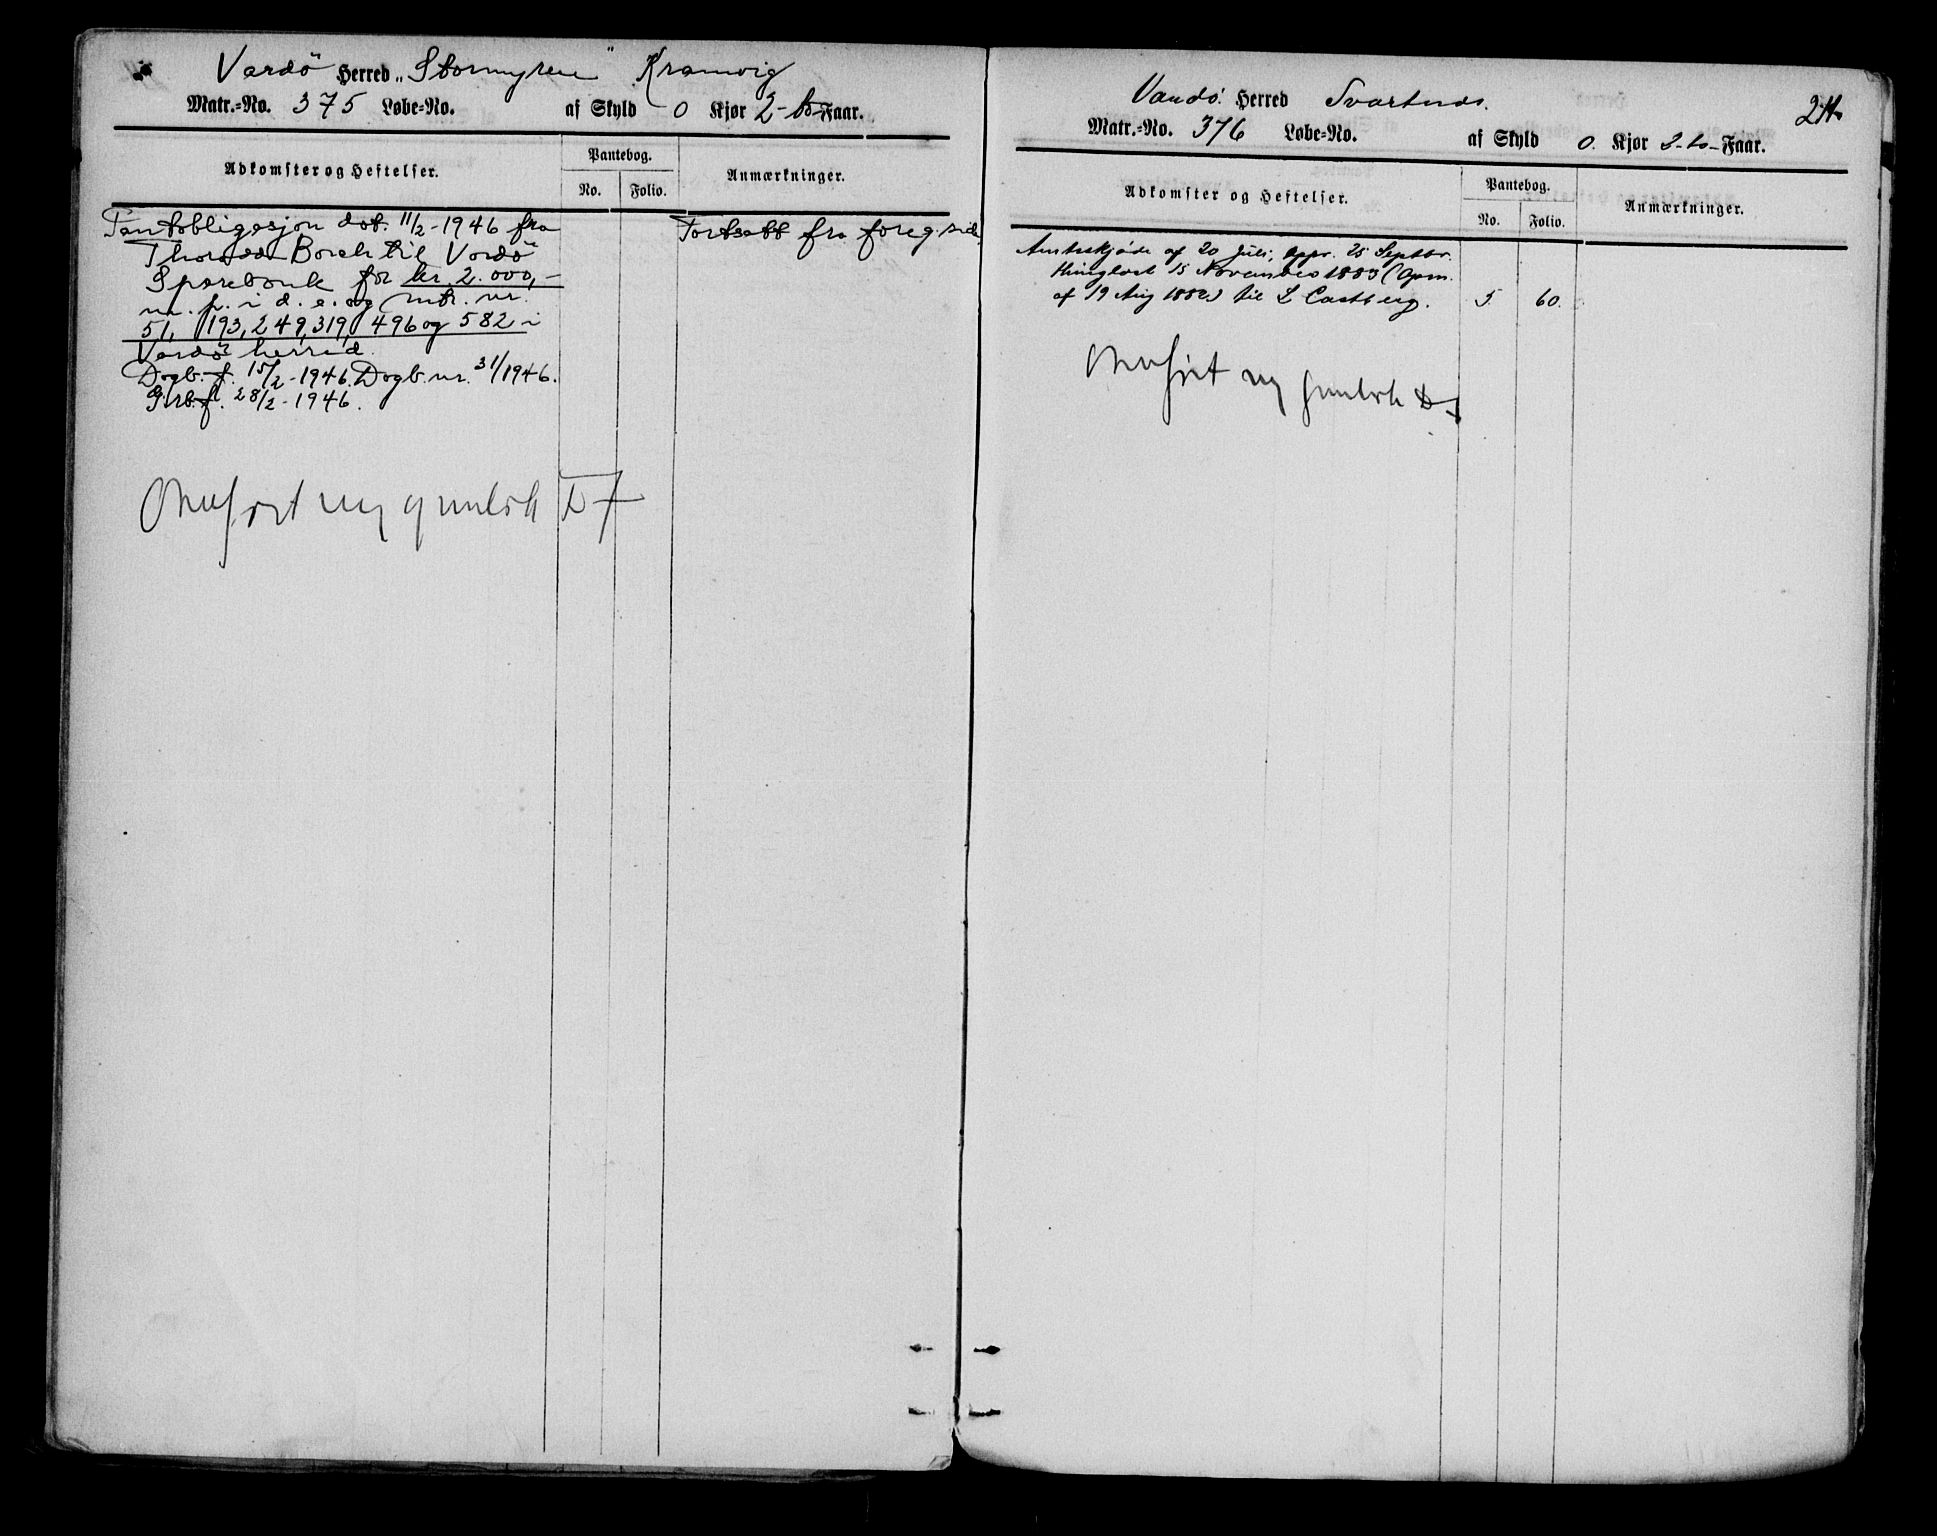 Vardö Herred „Stormyren" Kramvig
Matr.=No. 375 Løbe=No. af Skyld 0 Kjør 2- Faar.
Adkomster og Heftelser.
Pantebog.
No. Folio.
Anmærkninger.
Pantobligasjon dat. 11/2-1946 fra
Borch til Vardö
Sparebank for kr. 2.000,-
m. p. i d. e. og mtr. nr.
51, 193, 249, 319, 496 og 582 i
Vardö herred.
Dagb.f. 15/2-1946. Dagb.nr. 31/1946.
28/2-1946.
Fortsatt fra foreg. side.
Overført ny grunbok
Vardö Herred Svartnes.
24
Matr.=No. 376 Løbe=No. af Skyld 0. Kjør 2- Faar.
Adkomster og Heftelser.
Pantebog.
No. Folio.
Anmærkninger.
Amtsskjøde af 20 Juli, appr. 25 Septbr.
thinglæst 15 November 1883 (Opm.
af 19 Aug 1882) til L Castberg. 5 60.
Overført ny grunbok